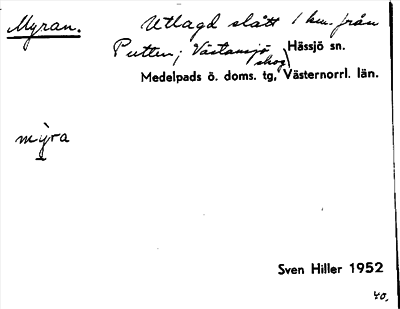 Myran.
Utlagd slått 1 km. från
Putten; Västansjö Hässjö sn.
skog
Medelpads ö. doms. tg, Västernorrl. län.
mỳra
Sven Hiller 1952
40.